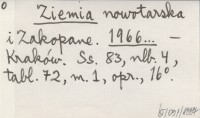 0
Ziemia nowotarska
i Zakopane. 1966... –
Kraków. Ss. 83, nlb. 4,
tabl. 72, m. 1, opr., 16°.